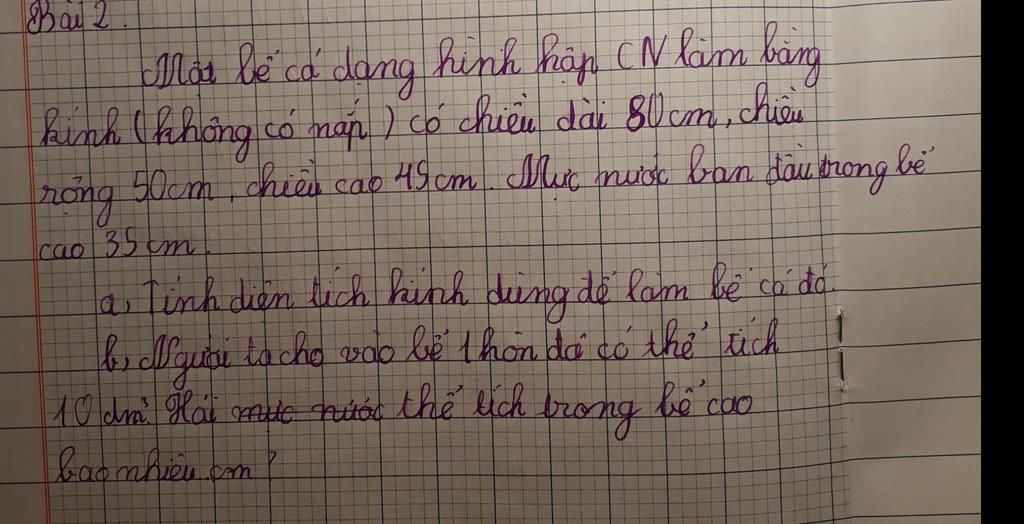 Bài 2.
Một bể cá dạng hình hộp CN làm bằng
kính (không có nắp) có chiều dài 80cm, chiều
rộng 50cm, chiều cao 45cm. Mực nước ban đầu trong bể
cao 35 cm.
a, Tính diện tích kính dùng để làm bể cá đó.
b, Người ta cho vào bể 1 hòn đá có thể tích
10 dm³. Hỏi mực nước thể tích trong bể cao
bao nhiêu cm?